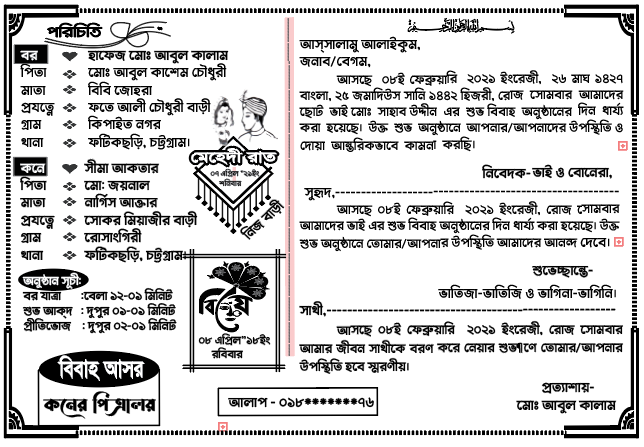 পরিচিতি
বর ❤ হাফেজ মোঃ আবুল কালাম
পিতা ❖ মোঃ আবুল কাশেম চৌধুরী
মাতা ❖ বিবি জোহরা
প্রযত্নে ❖ ফতে আলী চৌধুরী বাড়ী
গ্রাম ❖ কিপাইত নগর
থানা ❖ ফটিকছড়ি, চট্টগ্রাম।
কনে ❤ সীমা আকতার
পিতা ❖ মো: জয়নাল
মাতা ❖ নার্গিস আক্তার
প্রযত্নে ❖ সোকর মিয়াজীর বাড়ী
গ্রাম ❖ রোসাংগিরী
থানা ❖ ফটিকছড়ি, চট্টগ্রাম।
অনুষ্ঠান সূচী:
বর যাত্রা :বেলা ১২-০১ মিনিট
শুভ আকদ : দুপুর ০১-০১ মিনিট
প্রীতিভোজ : দুপুর ০২-০১ মিনিট
বিবাহ আসর
কনের পিত্রালয়
মেহেদী রাত
০৭ এপ্রিল"২১ইং
শনিবার
নিজ বাড়ী
০৮ এপ্রিল"১৮ইং
রবিবার
আস্সালামু আলাইকুম,
জনাব/বেগম,
আসছে ০৮ই ফেব্রুয়ারি ২০২১ ইংরেজী, ২৬ মাঘ ১৪২৭
বাংলা, ২৫ জমাদিউস সানি ১৪৪২ হিজরী, রোজ সোমবার আমাদের
ছোট ভাই মোঃ সাহাব উদ্দীন এর শুভ বিবাহ অনুষ্ঠানের দিন ধার্য্য
করা হয়েছে। উক্ত শুভ অনুষ্ঠানে আপনার/আপনাদের উপস্থিতি ও
দোয়া আন্তরিকভাবে কামনা করছি।
নিবেদক-ভাই ও বোনেরা,
সুহৃদ,--------------------
আসছে ০৮ই ফেব্রুয়ারি ২০২১ ইংরেজী, রোজ সোমবার
আমাদের ভাই এর শুভ বিবাহ অনুষ্ঠানের দিন ধার্য্য করা হয়েছে। উক্ত
শুভ অনুষ্ঠানে তোমার/আপনার উপস্থিতি আমাদের আনন্দ দেবে।
শুভেচ্ছান্তে-
ভাতিজা-ভাতিজি ও ভাগিনা-ভাগিনি।
সাথী,--------------------
আসছে ০৮ই ফেব্রুয়ারি ২০২১ ইংরেজী, রোজ সোমবার
আমার জীবন সাথীকে বরণ করে নেয়ার শুভক্ষণে তোমার/আপনার
উপস্থিতি হবে স্মরণীয়।
প্রত্যাশায়-
মোঃ আবুল কালাম
আলাপ - ০১৮*******৭৬